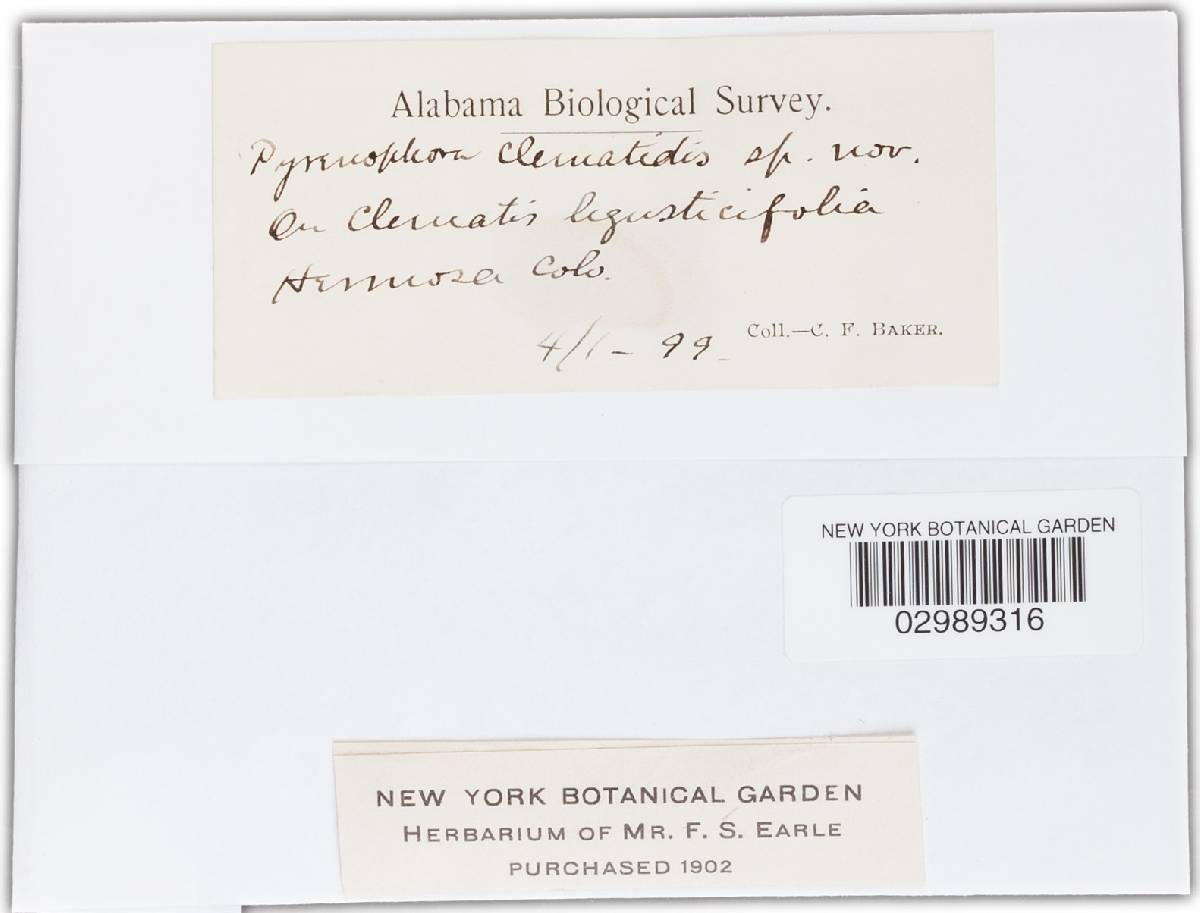 Alabama Biological Survey.
Pyrenophora Clematidis sp. nov.
On Clematis ligusticifolia
Hermosa Colo.
4/1 - 99
Coll.—C. F. BAKER.
NEW YORK BOTANICAL GARDEN
02989316
NEW YORK BOTANICAL GARDEN
HERBARIUM OF MR. F. S. EARLE
PURCHASED 1902